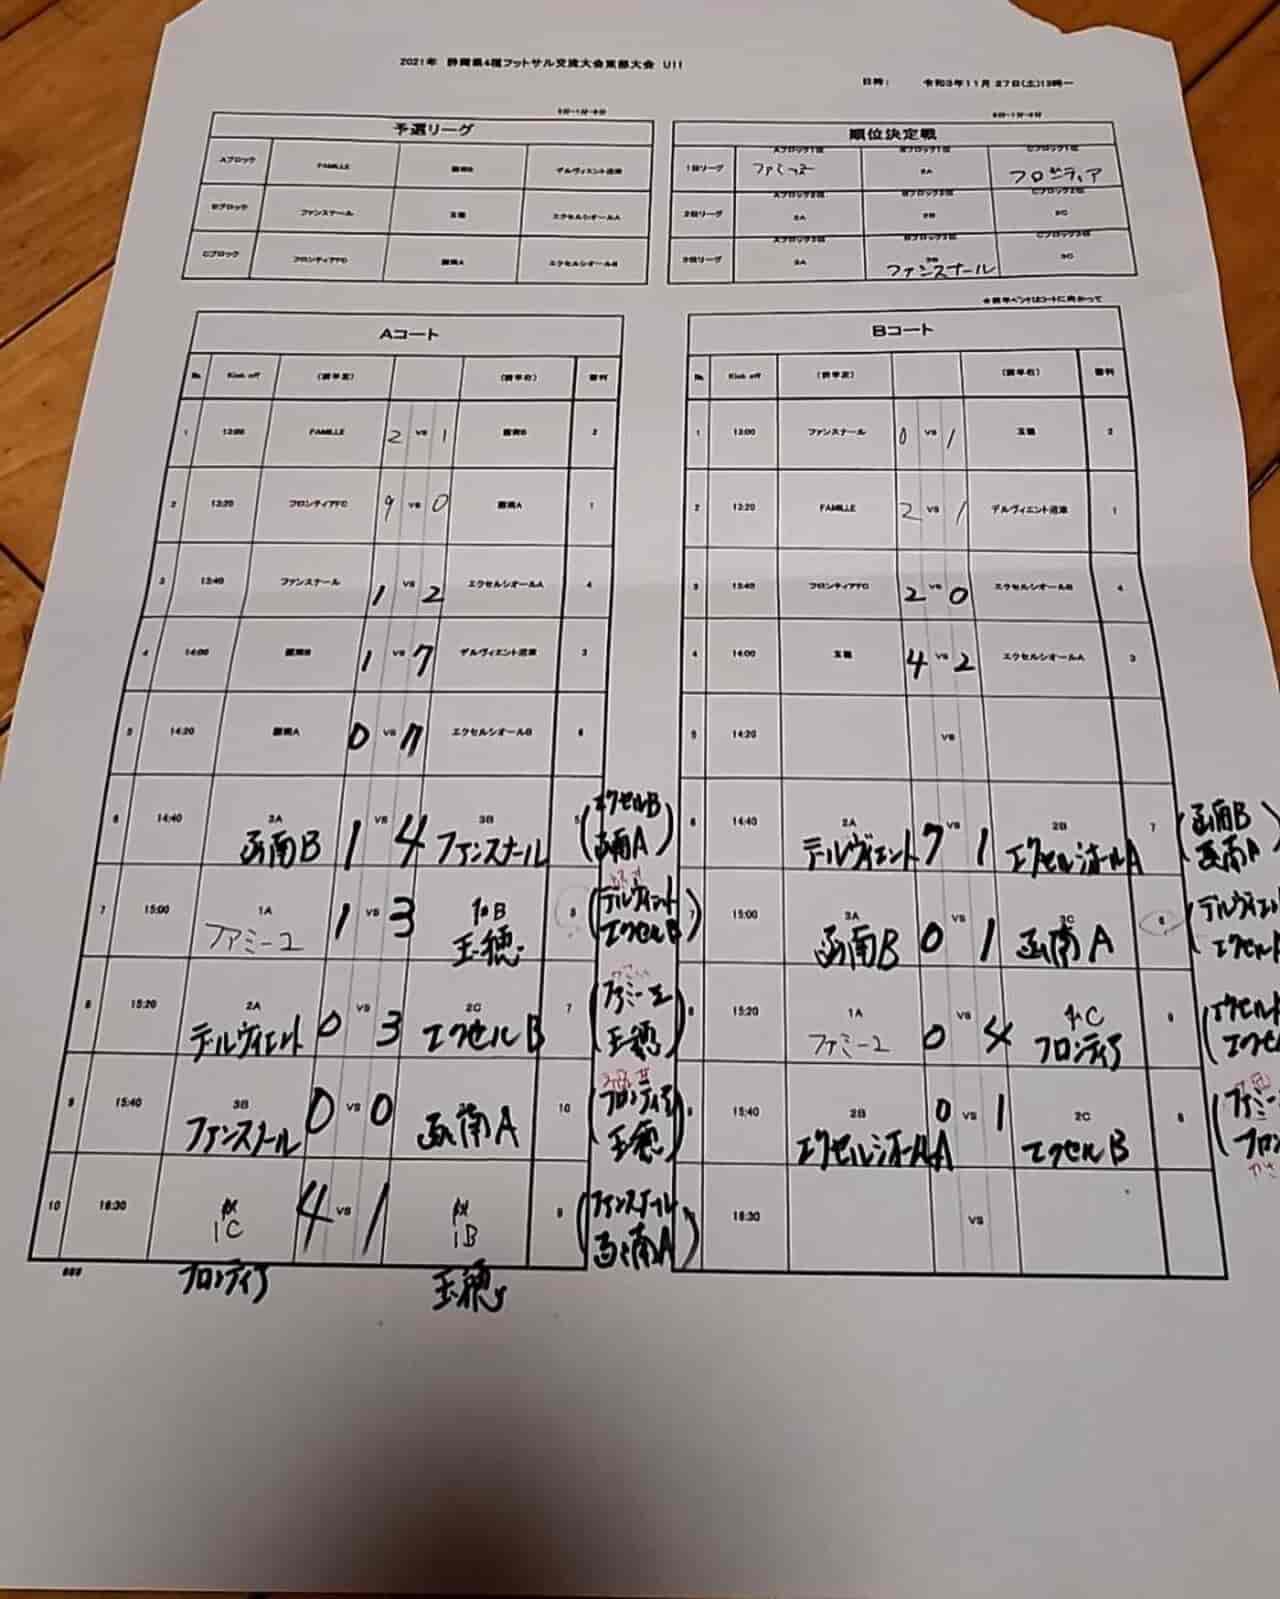 2021年 静岡県4種フットサル交流大会東部大会 U11
日時： 令和3年11月27日(土)13時〜
予選リーグ
Aブロック FAMILLE 函南B デルヴィエント沼津
Bブロック ファンスナール 玉穂 エクセルシオールA
Cブロック フロンティアFC 函南A エクセルシオールB
順位決定戦
Aブロック1位 Bブロック1位 Cブロック1位
1位リーグ ファミーユ フロンティア
Aブロック2位 Bブロック2位 Cブロック2位
2位リーグ 2A 2B 2C
Aブロック3位 Bブロック3位 Cブロック3位
3位リーグ 3A 3B 3C
ファンスナール
※前半ベンチはコートに向かって
Aコート
№ Kick off (前半左) (前半右) 審判
1 13:00 FAMILLE 2 vs 1 函南B 2
2 13:20 フロンティアFC 9 vs 0 函南A 1
3 13:40 ファンスナール 1 vs 2 エクセルシオールA 4
4 14:00 函南B 1 vs 7 デルヴィエント沼津 3
5 14:20 函南A 0 vs 7 エクセルシオールB 6
6 14:40 3A 函南B 1 vs 4 3B ファンスナール 5 (エクセルB 函南A)
7 15:00 1A ファミーユ 1 vs 3 1B 玉穂 (デルヴィエント エクセルB)
8 15:20 2A デルヴィエント 0 vs 3 2C エクセルB 7 (ファミーユ 玉穂)
9 15:40 3B ファンスナール 0 vs 0 函南A 10 (フロンティア 玉穂)
10 16:30 1C 4 vs 1 1B 9 (ファンスナール 函南A)
フロンティア 玉穂
Bコート
№ Kick off (前半左) (前半右) 審判
1 13:00 ファンスナール 0 vs 1 玉穂 2
2 13:20 FAMILLE 2 vs 1 デルヴィエント沼津 1
3 13:40 フロンティアFC 2 vs 0 エクセルシオールB 4
4 14:00 玉穂 4 vs 2 エクセルシオールA 3
5 14:20 vs
6 14:40 2A デルヴィエント 7 vs 1 2B エクセルシオールA 7 (函南B 函南A)
7 15:00 3A 函南B 0 vs 1 3C 函南A (デルヴィエント
8 15:20 1A ファミーユ 0 vs 4 1C フロンティア 9
9 15:40 2B エクセルシオールA 0 vs 1 2C エクセルB 8
16:30 vs